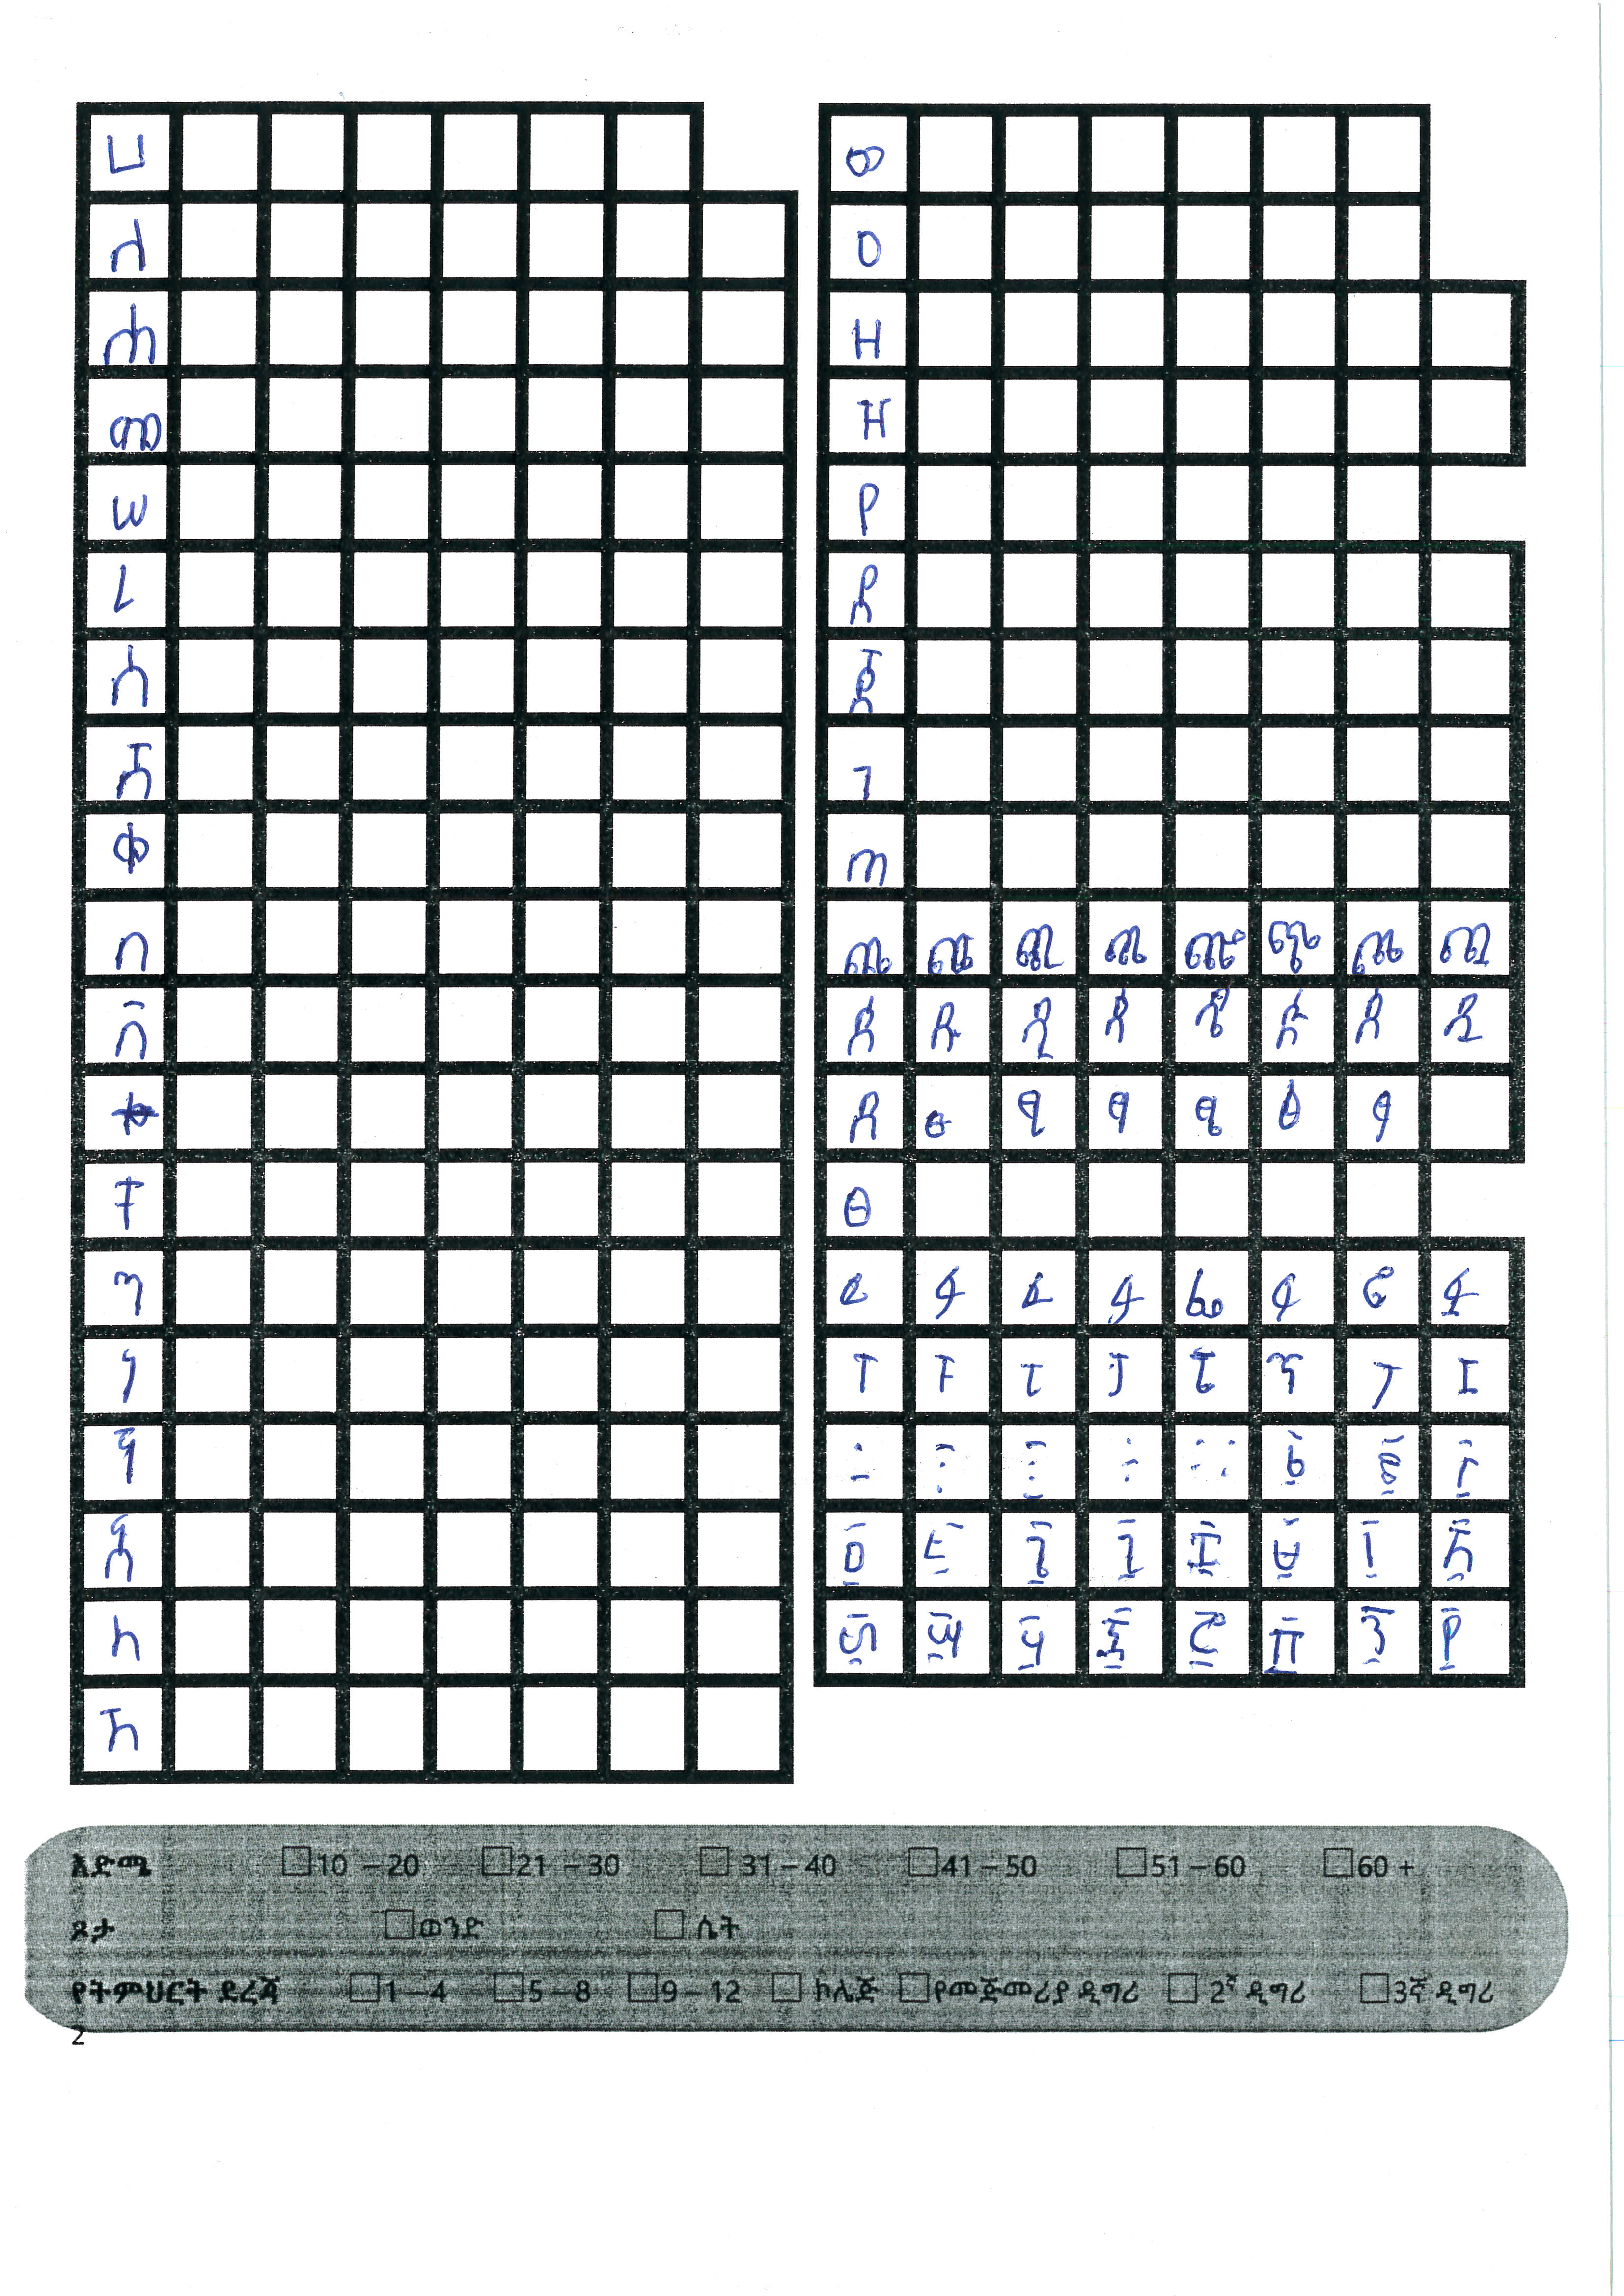 ሀ
ለ
ሐ
መ
ሠ
ረ
ሰ
ሸ
ቀ
በ
ቨ
ተ
ቸ
ኀ
ነ
ኘ
አ
ከ
ኸ
ወ
ዐ
ዘ
ዠ
የ
ደ
ጀ
ገ
ጠ
ጨ ጩ ጪ ጫ ጬ ጭ ጮ ጯ
ጰ ጱ ጲ ጳ ጴ ጵ ጶ ጷ
ጸ ፁ ፂ ፃ ፄ ፅ ፆ
ፀ
ፈ ፉ ፊ ፋ ፌ ፍ ፎ ፏ
ፐ ፑ ፒ ፓ ፔ ፕ ፖ ፗ
፩ ፪ ፫
፬ ፭ ፮ ፯ ፰ ፱ ፲ ፳
፴ ፵ ፶ ፷ ፸ ፹ ፺ ፻
እድሜ 10 – 20 21 – 30 31 – 40 41 – 50 51 – 60 60 +
ጾታ ወንድ ሴት
የትምህርት ደረጃ 1 – 4 5 – 8 9 – 12 ኮሌጅ የመጀመሪያ ዲግሪ 2ኛ ዲግሪ 3ኛ ዲግሪ
2